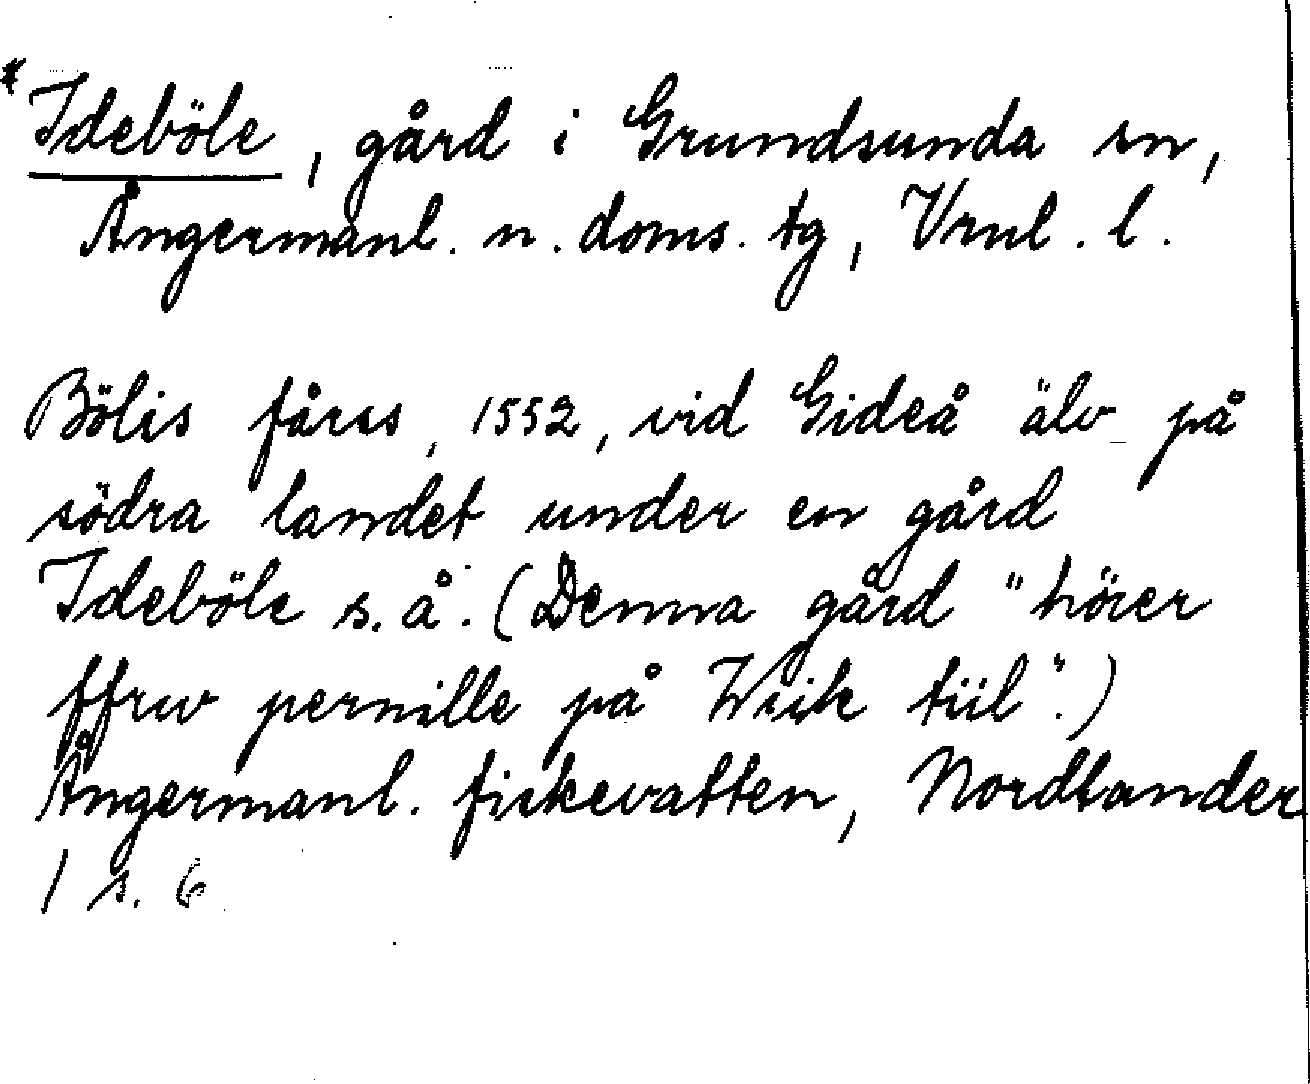 *Ideböle, gård i Grundsunda sn,
Ångermanl. n. doms. tg, Vrnl. l.
Bölis fårss, 1552, vid Gideå älv på
södra landet under en gård
Ideböle s. å. (Denna gård "hörer
ffrw pernille på Wiik tiil".)
Ångermanl. fiskevatten, Nordlander
1 s. 6